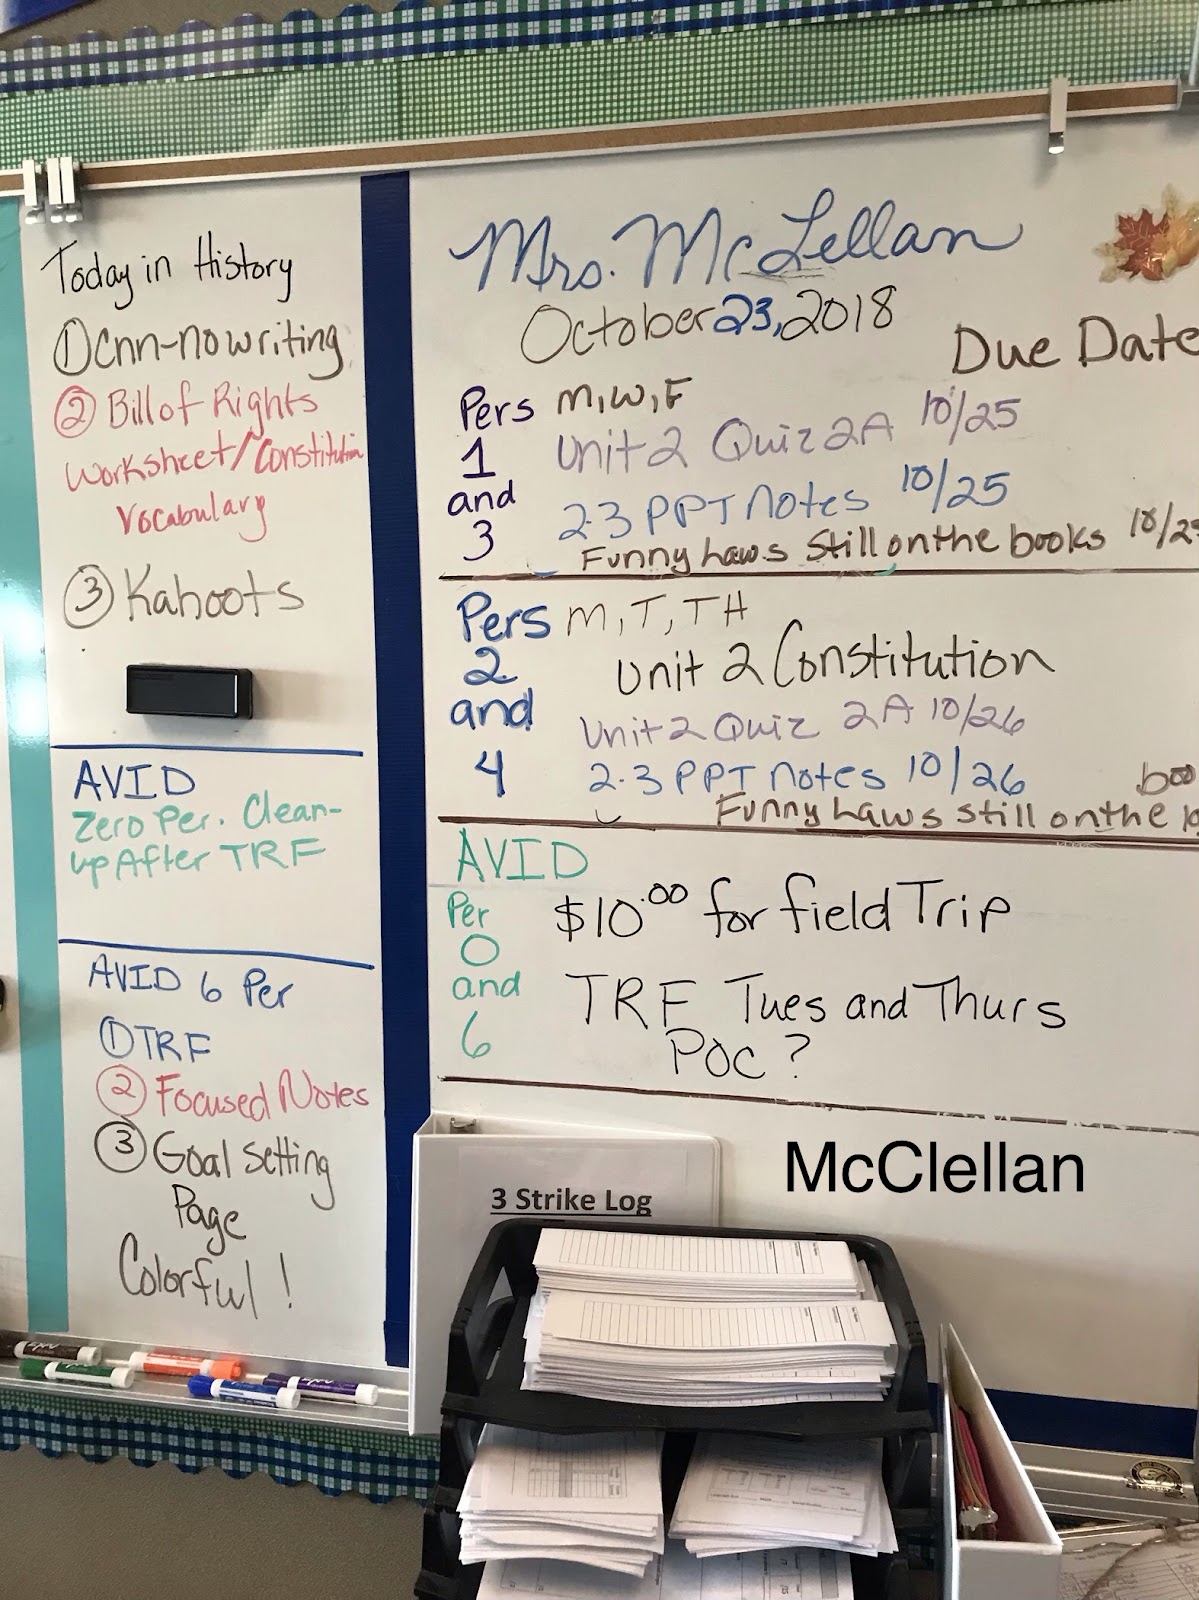 Today in History
① Cnn-no writing
② Bill of Rights
Worksheet/Constitution
Vocabulary
③ Kahoots
AVID
Zero Per. Clean-
up After TRF
AVID 6 Per
① TRF
② Focused Notes
③ Goal Setting
Page
Colorful!
Mrs. McLellan
October 23, 2018
Due Date
Pers
1
and
3
M, W, F
Unit 2 Quiz 2A 10/25
2.3 PPT Notes 10/25
Funny Laws Still on the books
Pers
2
and
4
M, T, TH
Unit 2 Constitution
Unit 2 Quiz 2A 10/26
2.3 PPT Notes 10/26
Funny Laws still on the
AVID
Per
0
and
6
$10.00 for field Trip
TRF Tues and Thurs
POC?
McClellan
3 Strike Log